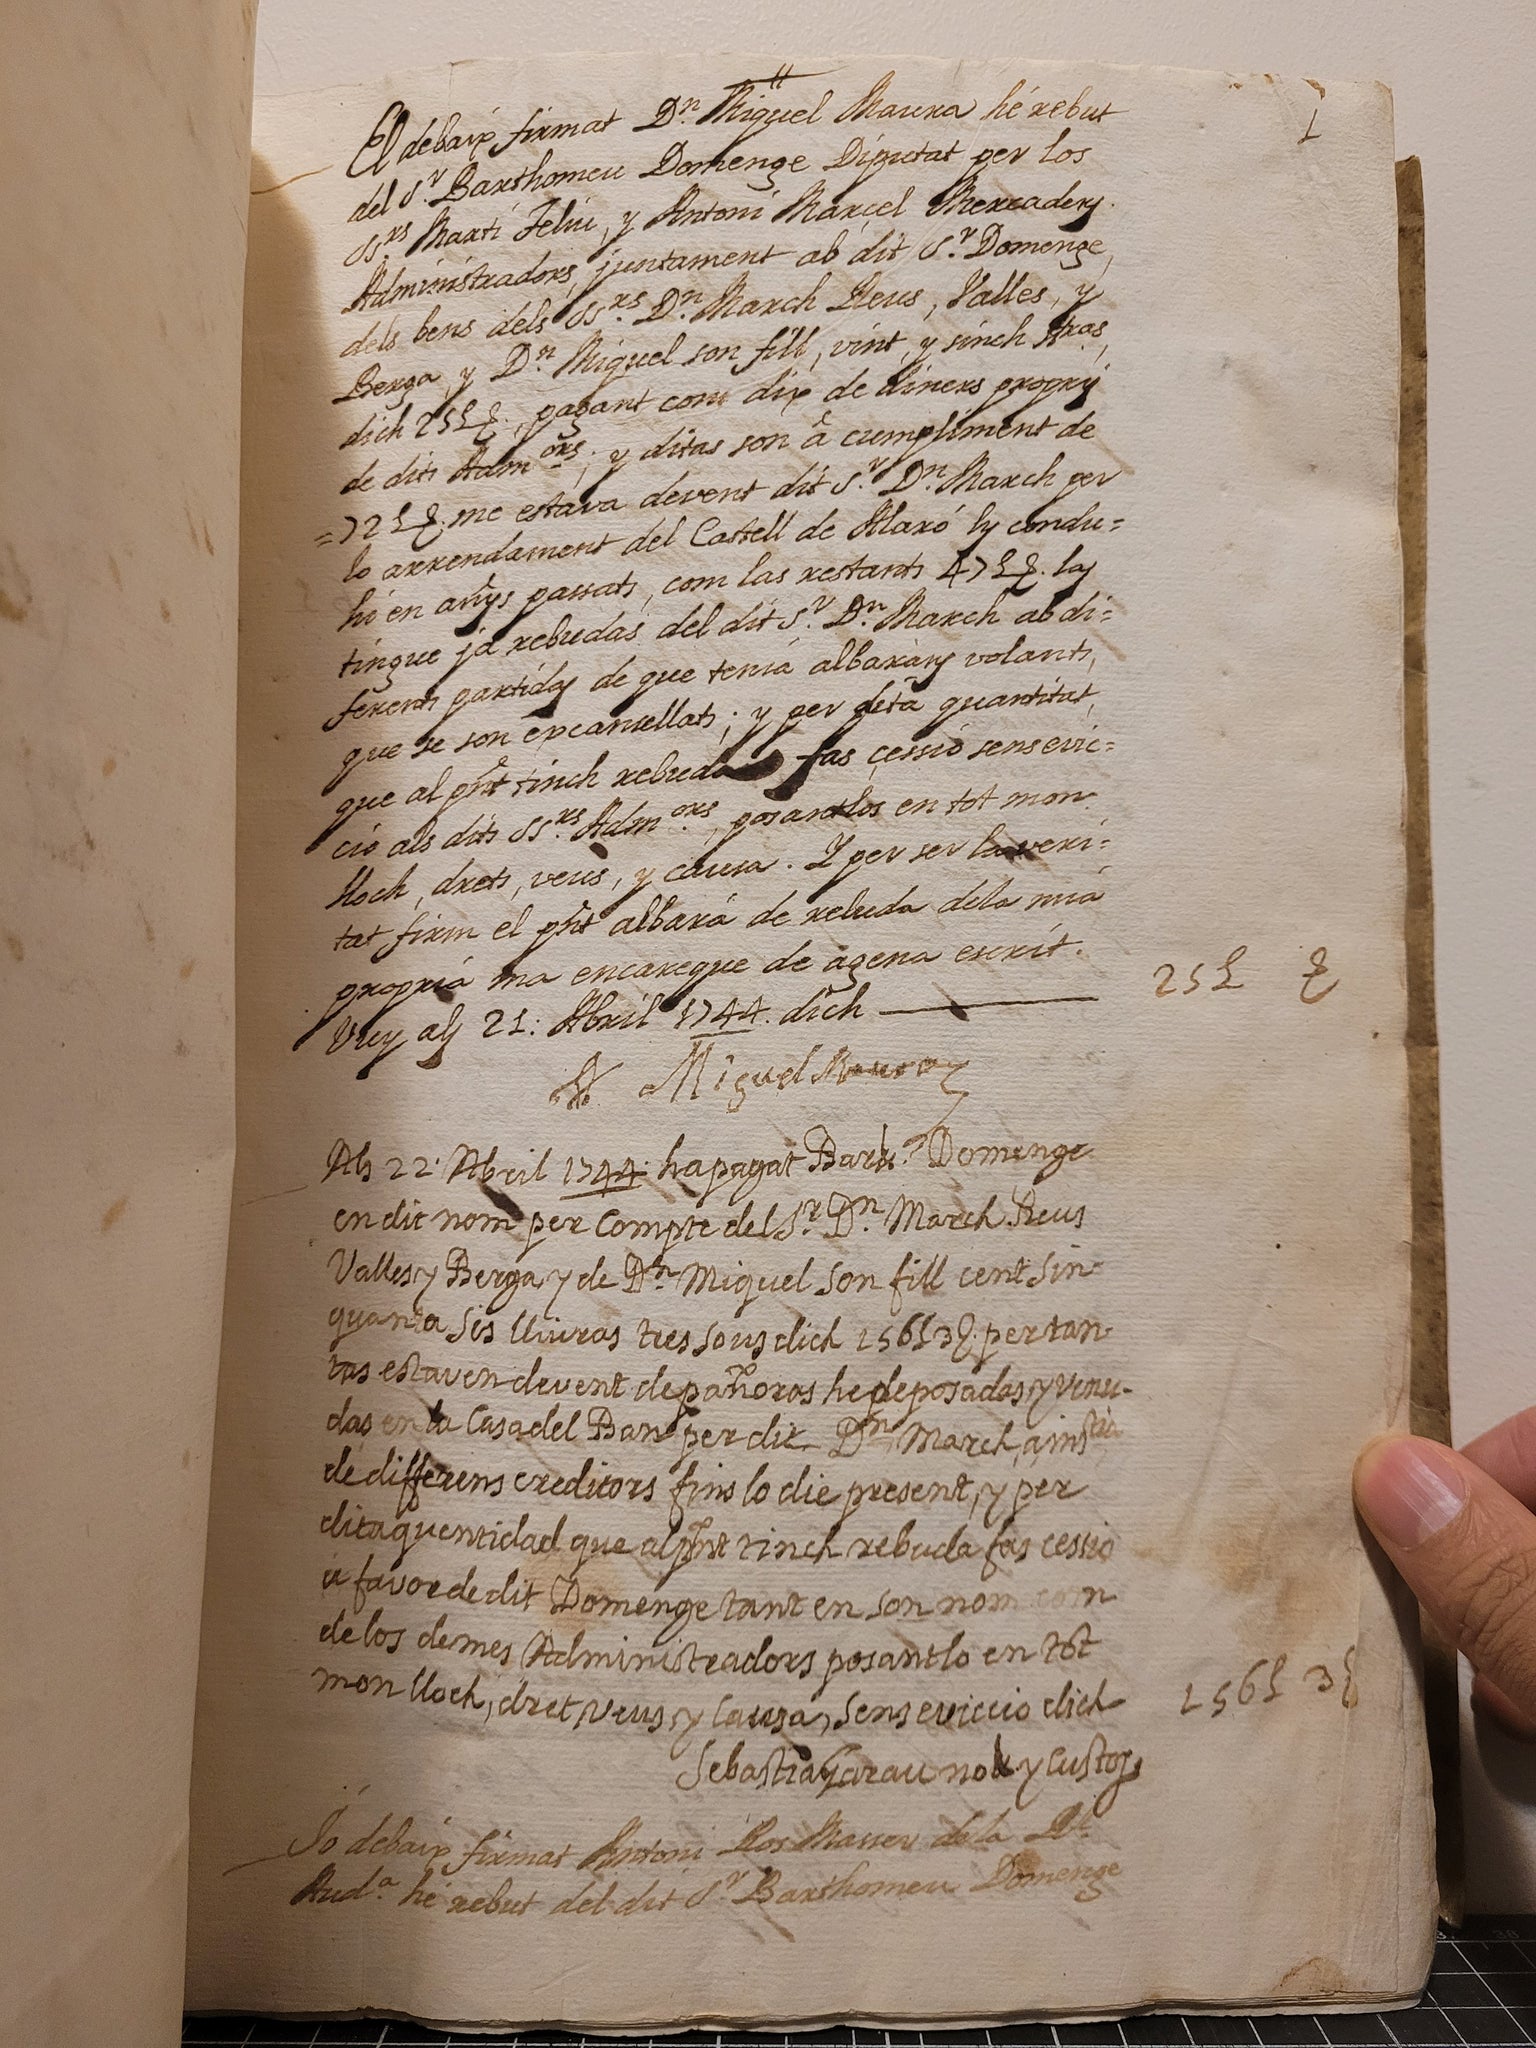 1
El debaix firmat Dn. Miquel Maura hé rebut
del Sr. Barthomeu Domenge Diputat per los
SSrs. Marti Feliu, y Antoni Marcel Mercaders.
Administradors, juntament ab dit Sr. Domenge,
dels bens dels SSrs. Dn. March Reus, Valles, y
Berga, y Dn. Miquel son fill, vint, y sinch
dich 25 £ , pagant com dix de diners propris
de dits Admors.; y ditas son â cumpliment de
=72 £ . me estava devent dit Sr. Dn. March per
lo arrendament del Castell de Alaró ly condu=
hi en añys passats, com las restants 47 £ . las
tingue já rebudas del dit Sr. Dn. March ab di=
ferents partidas de que tenia albarans volants,
que se son excansellats; y per dta quantitat,
que al pñt tinch rebuda fas cessió sens evic=
ció als dits SSrs. Admors., posantlos en tot mon
lloch, drets, veus, y causa. Y per ser la veri=
tat firm el pñt albará de rebuda de la mia
propria ma encaregue de agena escrit.
Vuy als 21: Abril 1744. dich — 25 £
Miguel Maura
Als 22 Abril 1744 ha pagat Barhu. Domenge
en dit nom per Compte del Sr. Dn. March Reus
Valles y Berga, y de Dn. Miquel son fill cent sin=
quanta sis lliuras tres sous dich 156 £ 3 . per tan
tas estaven devent de pañoras he deposadas, y venu-
das en la Casa del Ban per dit Dn March, a instcia
de differens creditors fins lo die present, y per
dita quentidad que al pñt tinch rebuda fas cessio
a favor de dit Domenge tant en son nom com
de los demes Administradors posantlo en tot
mon lloch, dret, veus, y Causa, sens eviccio dich 156 £ 3
Sebastia Garau not y Custos
Jo debaix firmat Antoni Ros Masser de la Rl
Auda. hé rebut del dit Sr Barthomeu Domenge